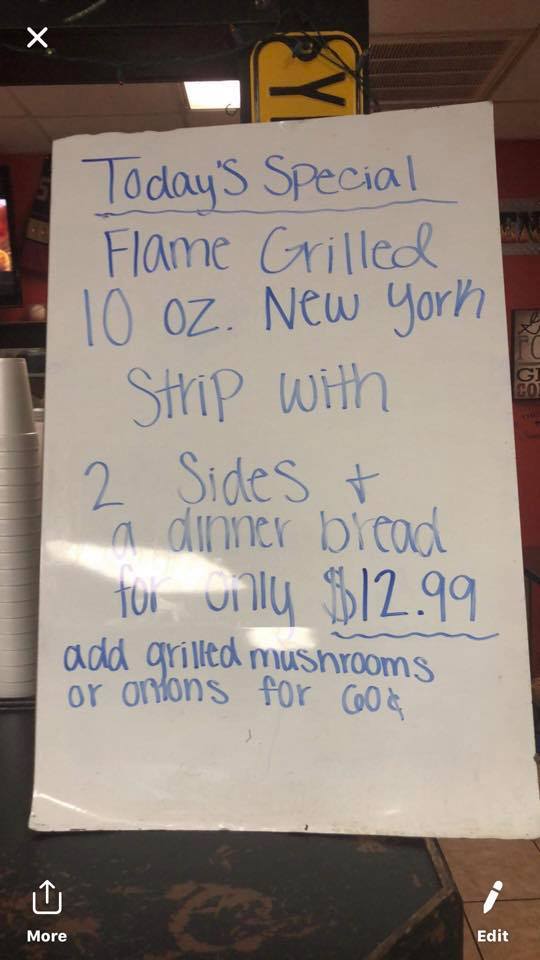 Today's Special
Flame Grilled
10 oz. New York
Strip with
2 Sides +
a dinner bread
for only $12.99
add grilled mushrooms
or onions for 60¢
More
Edit